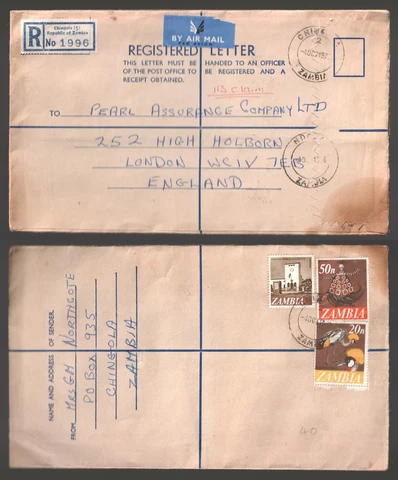 Chingola (5)
Republic of Zambia
R No 1996
BY AIR MAIL
PAR AVION
REGISTERED LETTER
THIS LETTER MUST BE HANDED TO AN OFFICER
OF THE POST OFFICE TO BE REGISTERED AND A
RECEIPT OBTAINED.
TO PEARL ASSURANCE COMPANY LTD
252 HIGH HOLBORN
LONDON WC1V 7EB
ENGLAND
ZAMBIA
ZAMBIA
NAME AND ADDRESS OF SENDER.
FROM MRS GM NORTHCOTE
PO BOX 935
CHINGOLA
ZAMBIA
ZAMBIA
50n
ZAMBIA
20n
ZAMBIA
40